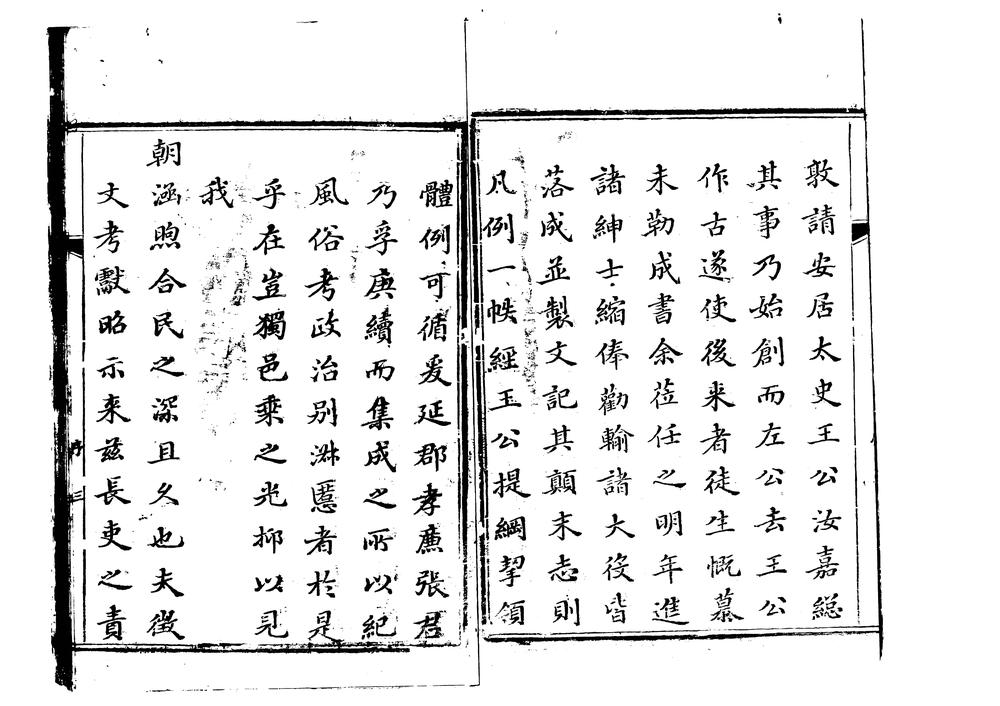 敦請安居太史王公汝嘉總
其事乃始創而左公去王公
作古遂使後来者徒生慨慕
未勒成書余蒞任之明年進
諸紳士縮俸勸輸諸大役皆
落成並製文記其顛末志則
凡例一帙經王公提綱挈領
體例可循爰延郡孝廉張君
乃孚賡續而集成之所以紀
風俗考政治别淑慝者於是
乎在豈獨邑乘之光抑以見
我
朝涵煦合民之深且久也夫徵
文考獻昭示来茲長吏之責
序 三